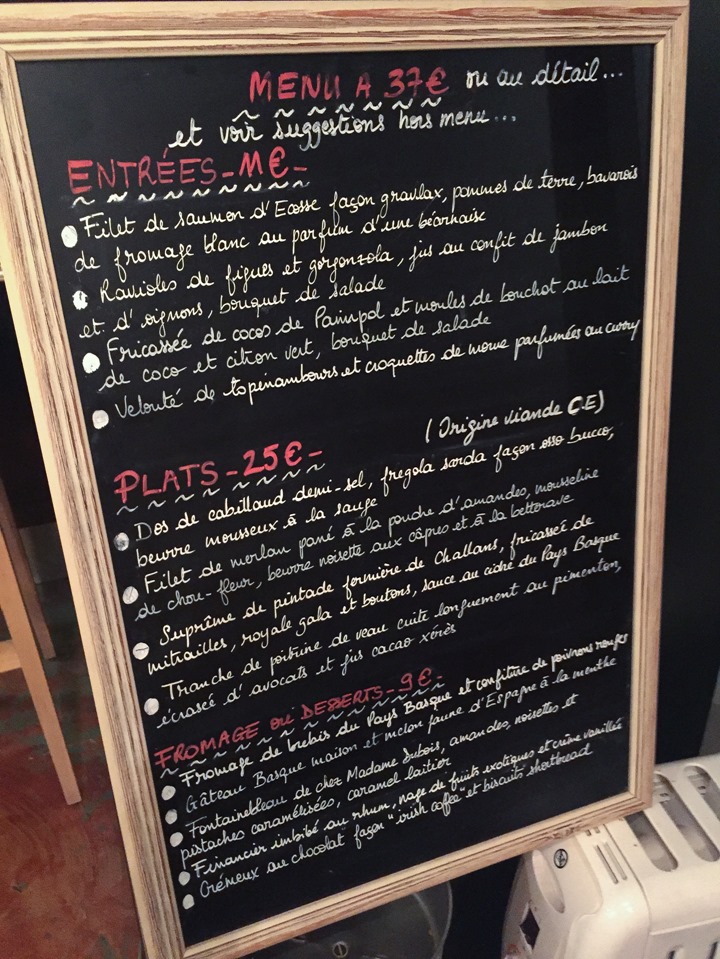 MENU A 37€ ou au détail...
et voir suggestions hors menu...
ENTRÉES-11€-
Filet de saumon d'Ecosse façon gravlax, pommes de terre, bavarois
de fromage blanc au parfum d'une béarnaise
Ravioles de figues et gorgonzola, jus au confit de jambon
et d'oignons, bouquet de salade
Fricassée de cocos de Paimpol et moules de bouchot au lait
de coco et citron vert, bouquet de salade
Velouté de topinambours et croquettes de morue parfumées au curry
(Origine viande CE)
PLATS-25€-
Dos de cabillaud demi-sel, fregola sarda façon osso bucco,
beurre mousseux à la sauge
Filet de merlan pané à la poudre d'amandes, mousseline
de chou-fleur, beurre noisette aux câpres et à la betterave
Suprême de pintade fermière de Challans, fricassée de
mitrailles, royale gala et boutons, sauce au cidre du Pays Basque
Tranche de poitrine de veau cuite longuement au pimenton,
écrasée d'avocats et jus cacao xérès
FROMAGE OU DESSERTS-9€-
Fromage de brebis du Pays Basque et confiture de poivrons rouges
Gâteau Basque maison et melon jaune d'Espagne à la menthe
Fontainebleau de chez Madame Dubois, amandes, noisettes et
pistaches caramélisées, caramel laitier
Financier imbibé au rhum, nage de fruits exotiques et crème vanillée
Crémeux au chocolat façon "irish coffee" et biscuits shortbread